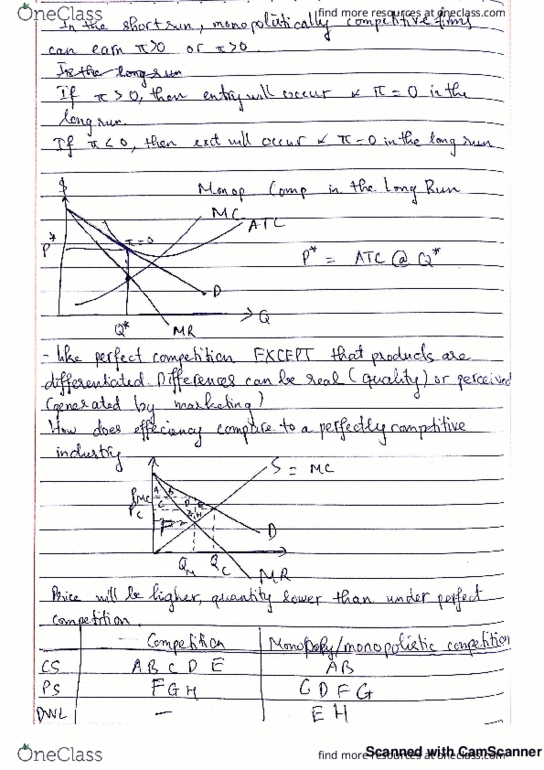 OneClass
find more resources at oneclass.com
In the short run, monopolistically competitive firms
can earn π>0 or π>0.
In the long run
If π>0, then entry will occur & π=0 in the
long run.
If π<0, then exit will occur & π=0 in the long run
$
Monop Comp in the Long Run
MC
ATC
π=0
P*
P* = ATC @ Q*
D
Q
Q*
MR
- like perfect competition EXCEPT that products are
differentiated. Differences can be real (quality) or perceived
(generated by marketing)
How does effeciency compare to a perfectly competitive
industry
S = MC
A B
PMC
C D E
PC
F G H
D
QM QC
MR
Price will be higher, quantity lower than under perfect
competition.
Competition Monopoly/monopolistic competition
CS A B C D E AB
PS F G H C D F G
DWL — E H
OneClass
find more resources at oneclass.com
Scanned with CamScanner